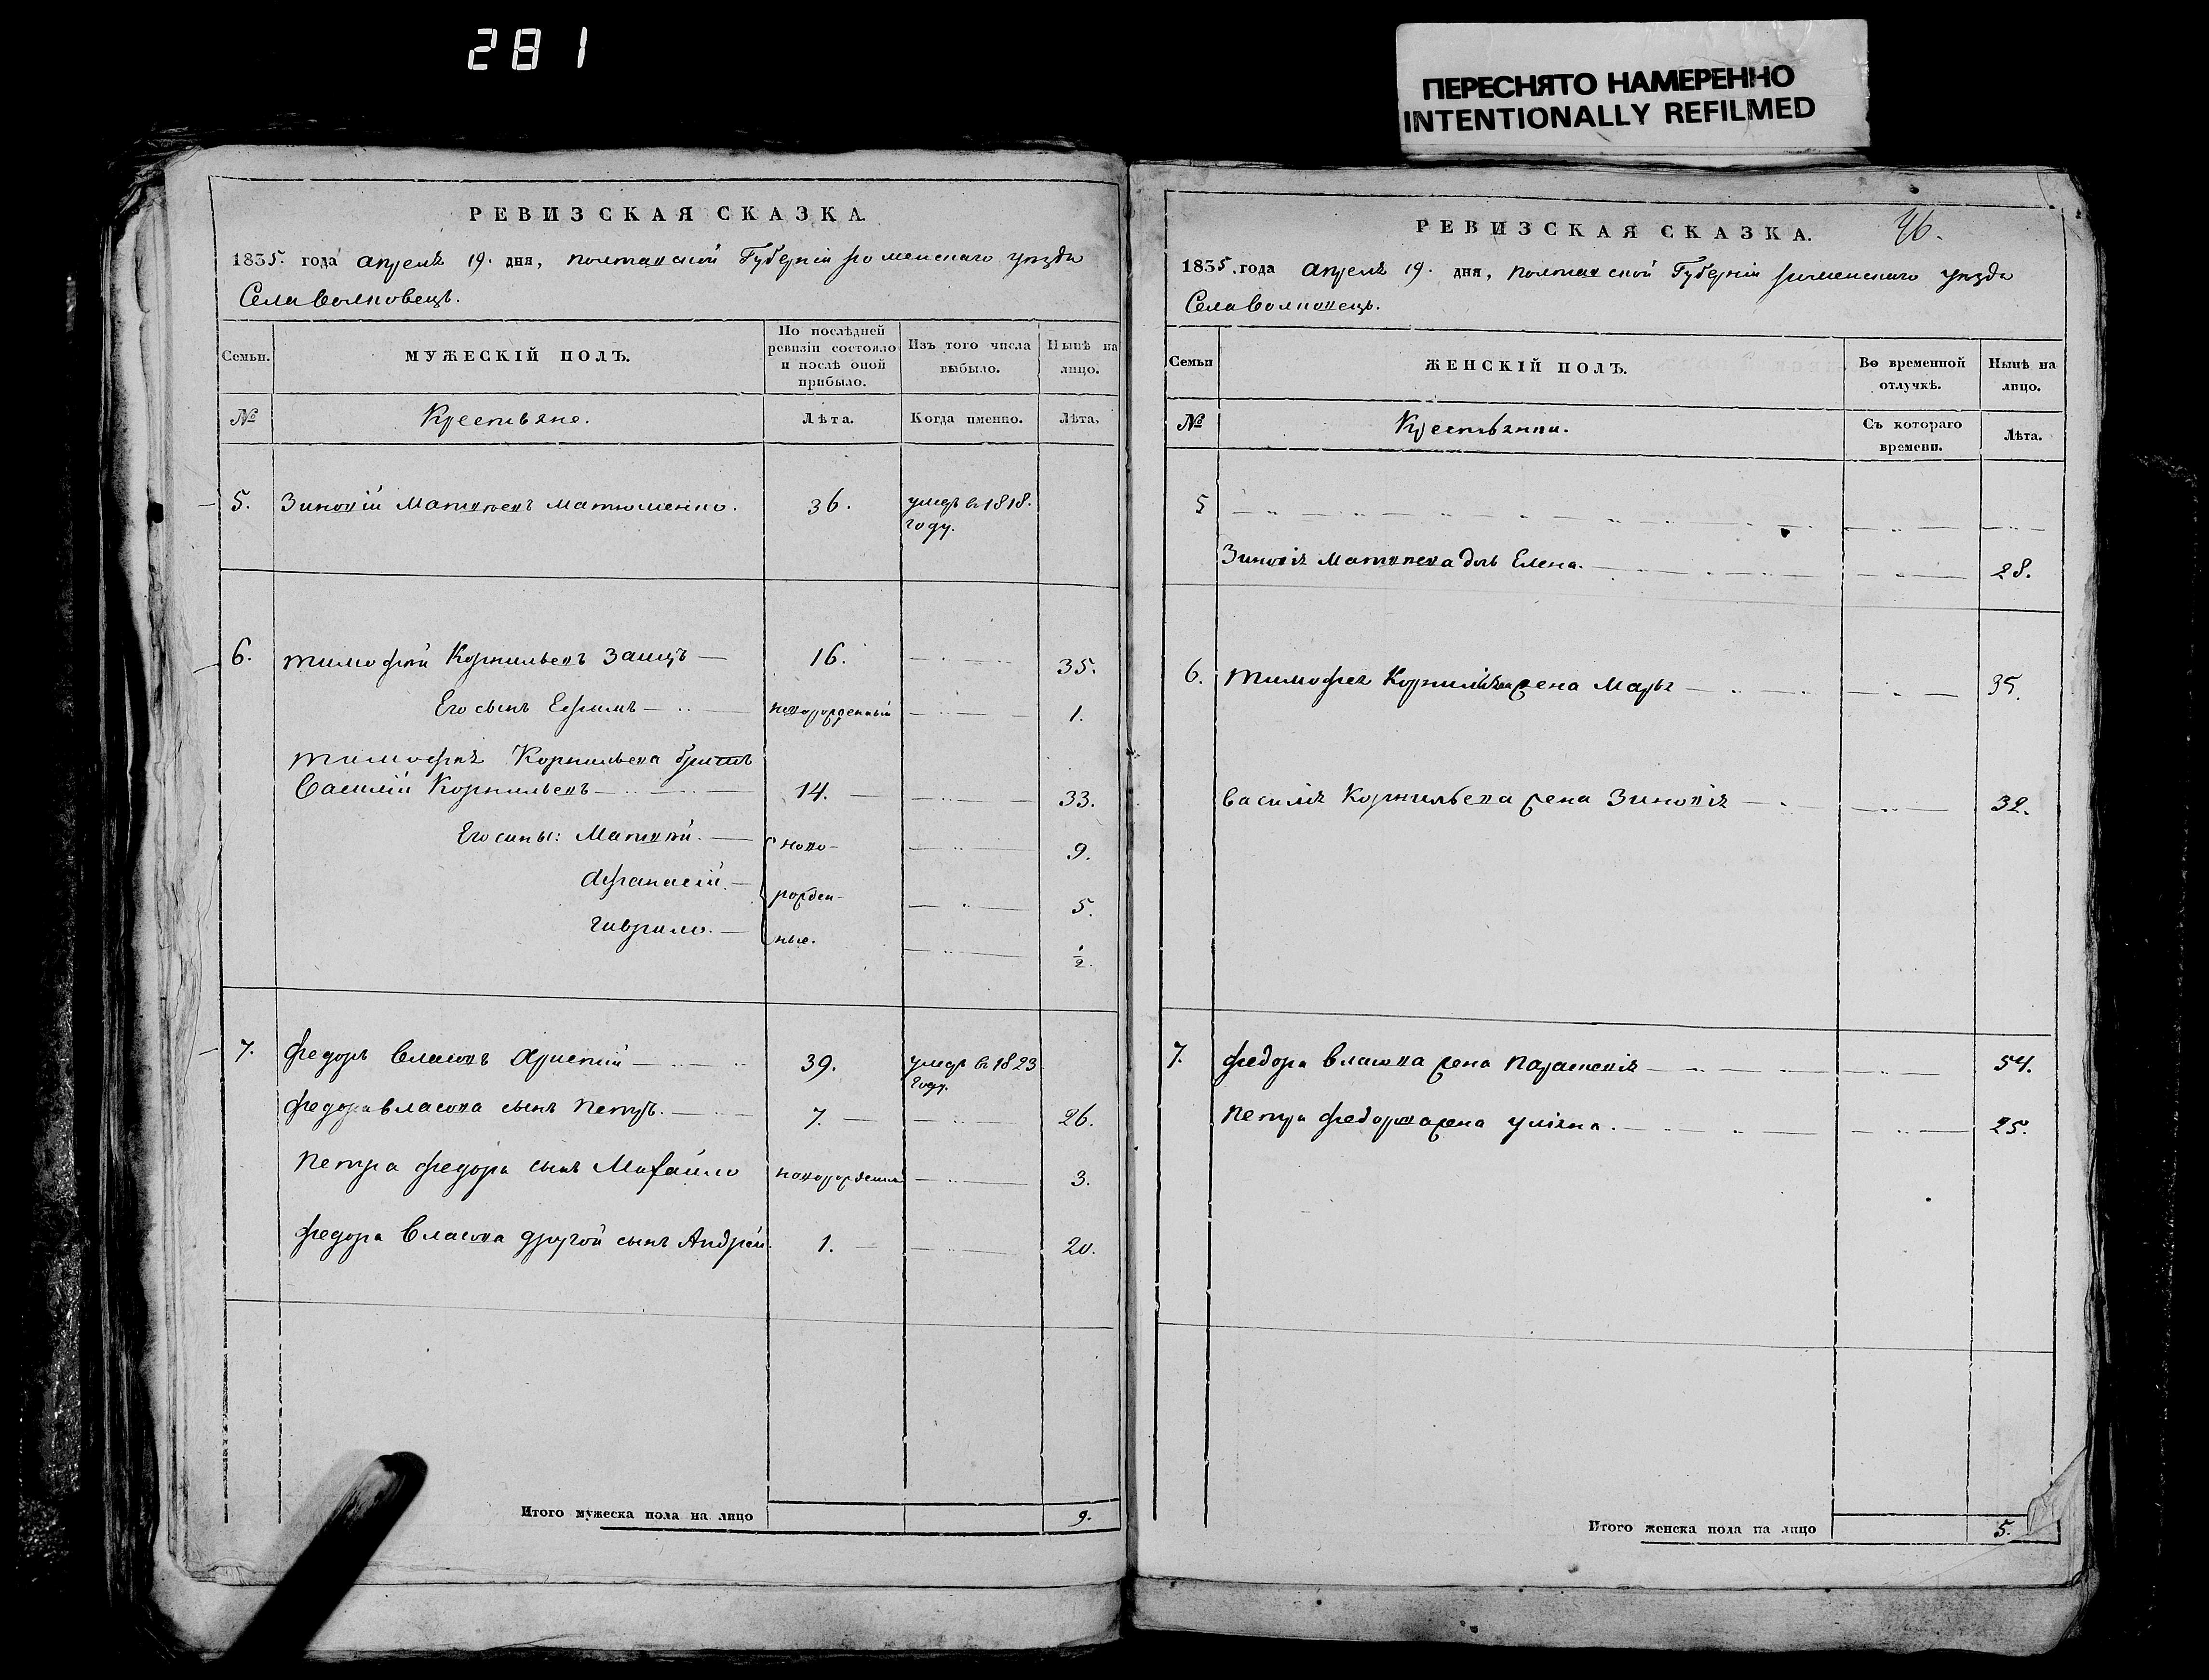 281
ПЕРЕСНЯТО НАМЕРЕННО
INTENTIONALLY REFILMED
РЕВИЗСКАЯ СКАЗКА.
1835. года апреля 19. дня, полтавской Губерніи роменскаго уезда
Села Волковець.
Семьи.
МУЖЕСКІЙ ПОЛЪ.
По последней ревизіи состояло и после оной прибыло.
Изъ того числа выбыло.
Ныне на лицо.
№
Крестьяне.
Лѣта.
Когда именно.
Лѣта.
5. Зиновій Матвѣевъ Матюшенко. 36. умеръ в 1818. году.
6. Тимофѣй Корнильевъ Заицъ — 16. 35.
Его сынъ Ефримъ — новорожденный 1.
Тимофѣя Корнильева братъ
Василій Корнильевъ — 14. 33.
Его сины: Матвѣй. — ново- 9.
Афанасій. — рожден- 5.
Гаврило. — ные. 1/2.
7. Федоръ Власовъ Аристій — 39. умеръ в 1823 году.
Федора Власова сынъ Петръ. — 7. 26.
Петра Федора сынъ Михайло новорожденный 3.
Федора Власова другой сынъ Андрей. 1. 20.
Итого мужеска пола на лицо 9.
РЕВИЗСКАЯ СКАЗКА.
46.
1835. года апреля 19. дня, полтавской Губерніи роменскаго уезда
Села Волковець.
Семьи
ЖЕНСКІЙ ПОЛЪ.
Во временной отлучкѣ.
Ныне на лицо.
№
Крестьянки.
Съ котораго времени.
Лѣта.
5
Зиновія Матвѣева дочь Елена. 28.
6. Тимофея Корнильева жена Марья 35.
Василія Корнильева жена Зиновія 32.
7. Федора Власова жена Параскевія 54.
Петра Федорова жена Уліяна. 25.
Итого женска пола на лицо 5.